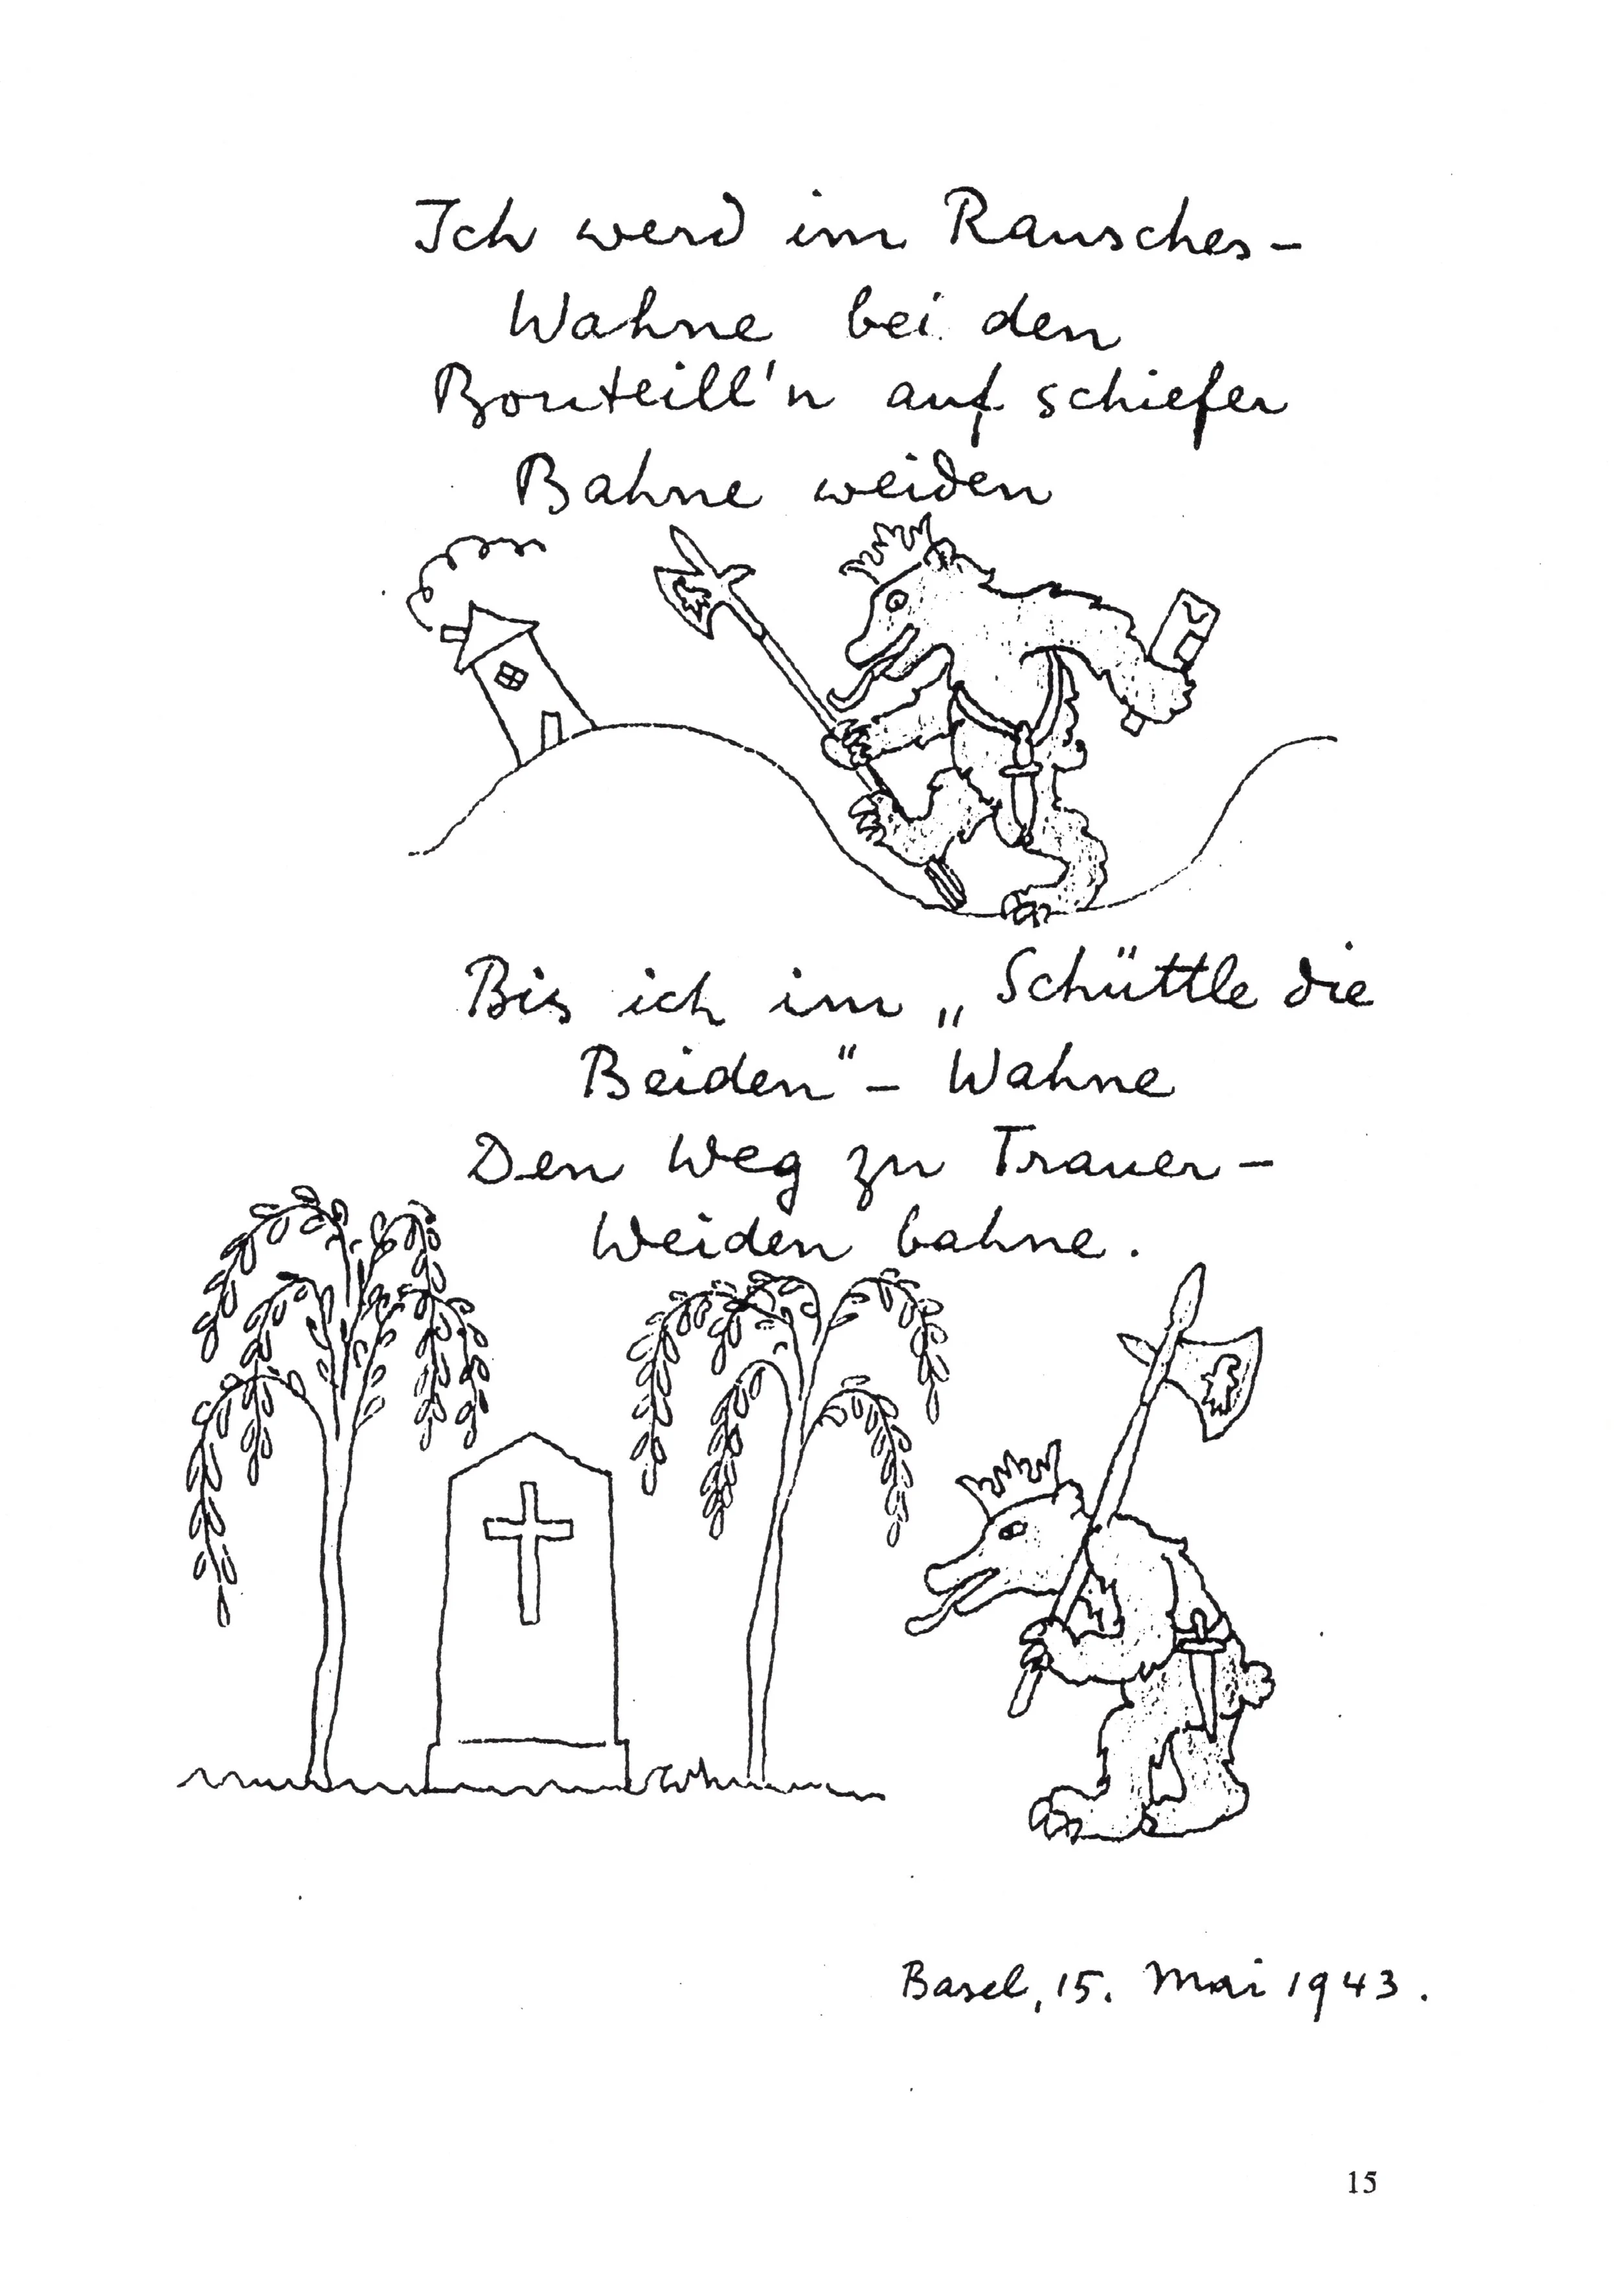 Ich werd im Rausches-
Wahne bei den
Bouteill'n auf schiefer
Bahne weiden
Bis ich im „Schüttle die
Beiden“ – Wahne
Den Weg zu Trauer-
Weiden bahne.
Basel, 15. Mai 1943.
15